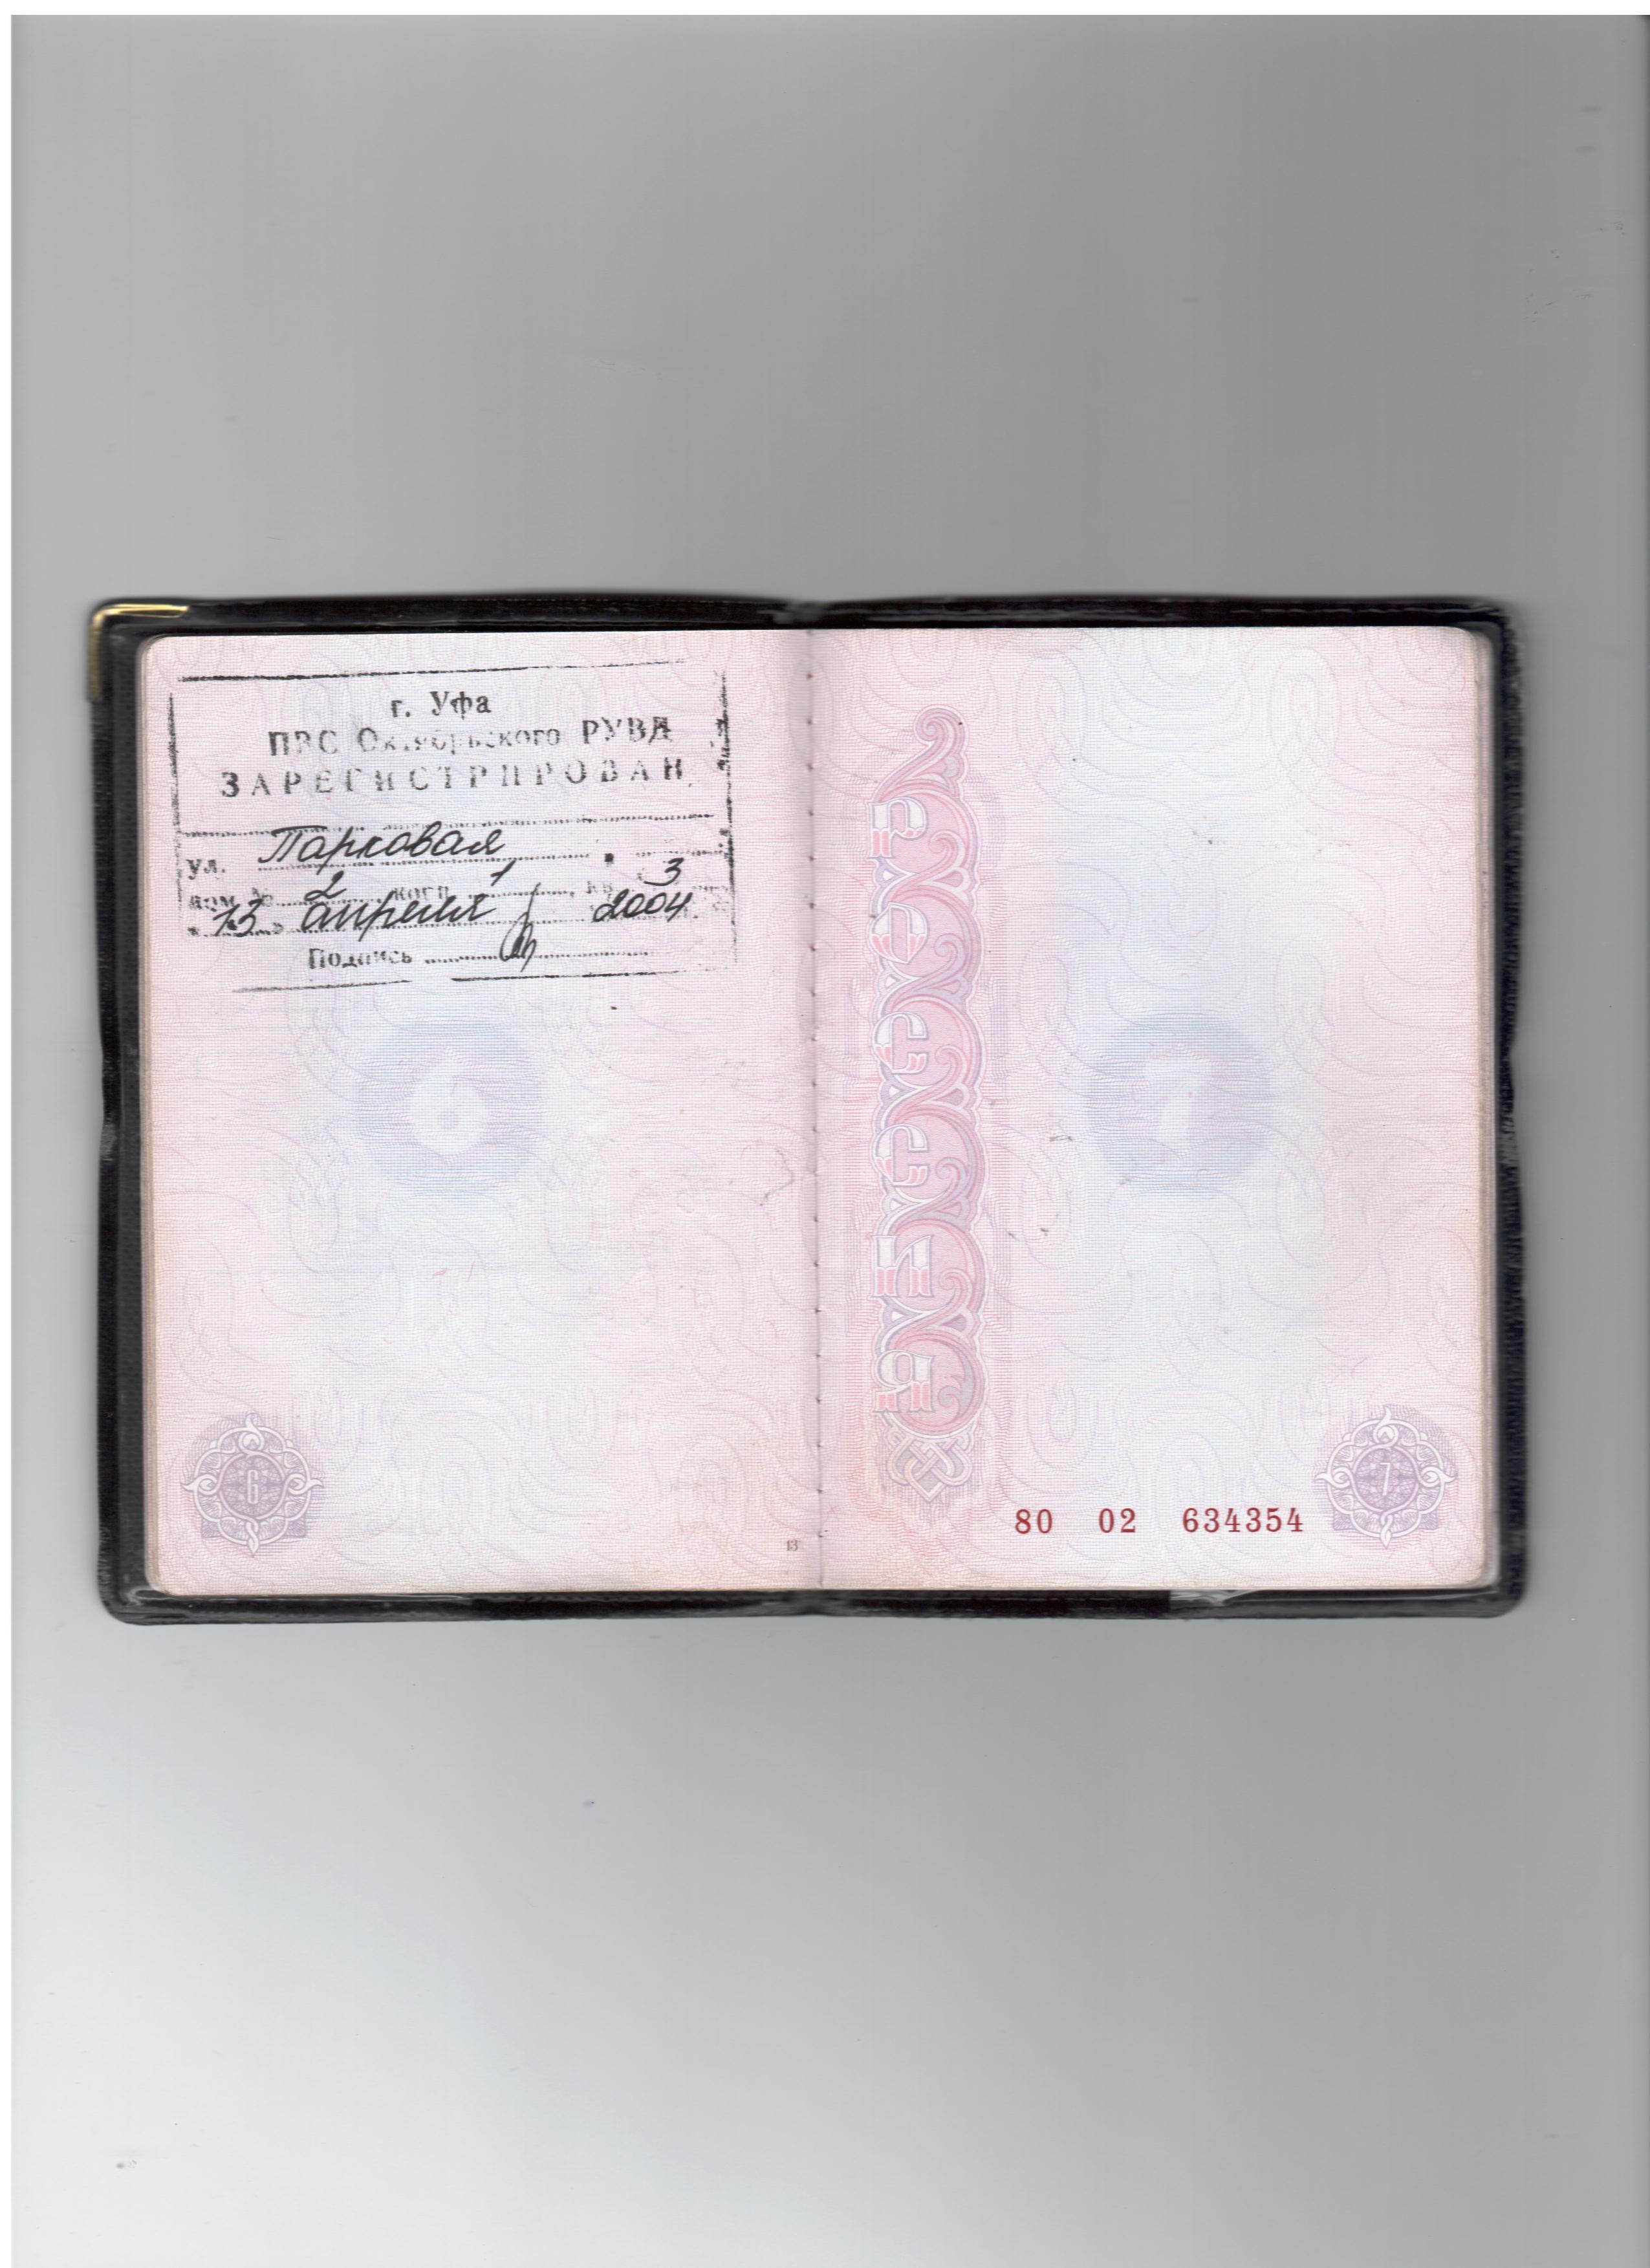 г. Уфа
ПВС Октябрьского РУВД
ЗАРЕГИСТРИРОВАН
ул. Парковая
дом № 2 корп. 1, кв. 3
"13" апреля 2004 г.
Подпись
6
6
13
РОССИЯ
7
80 02 634354
7